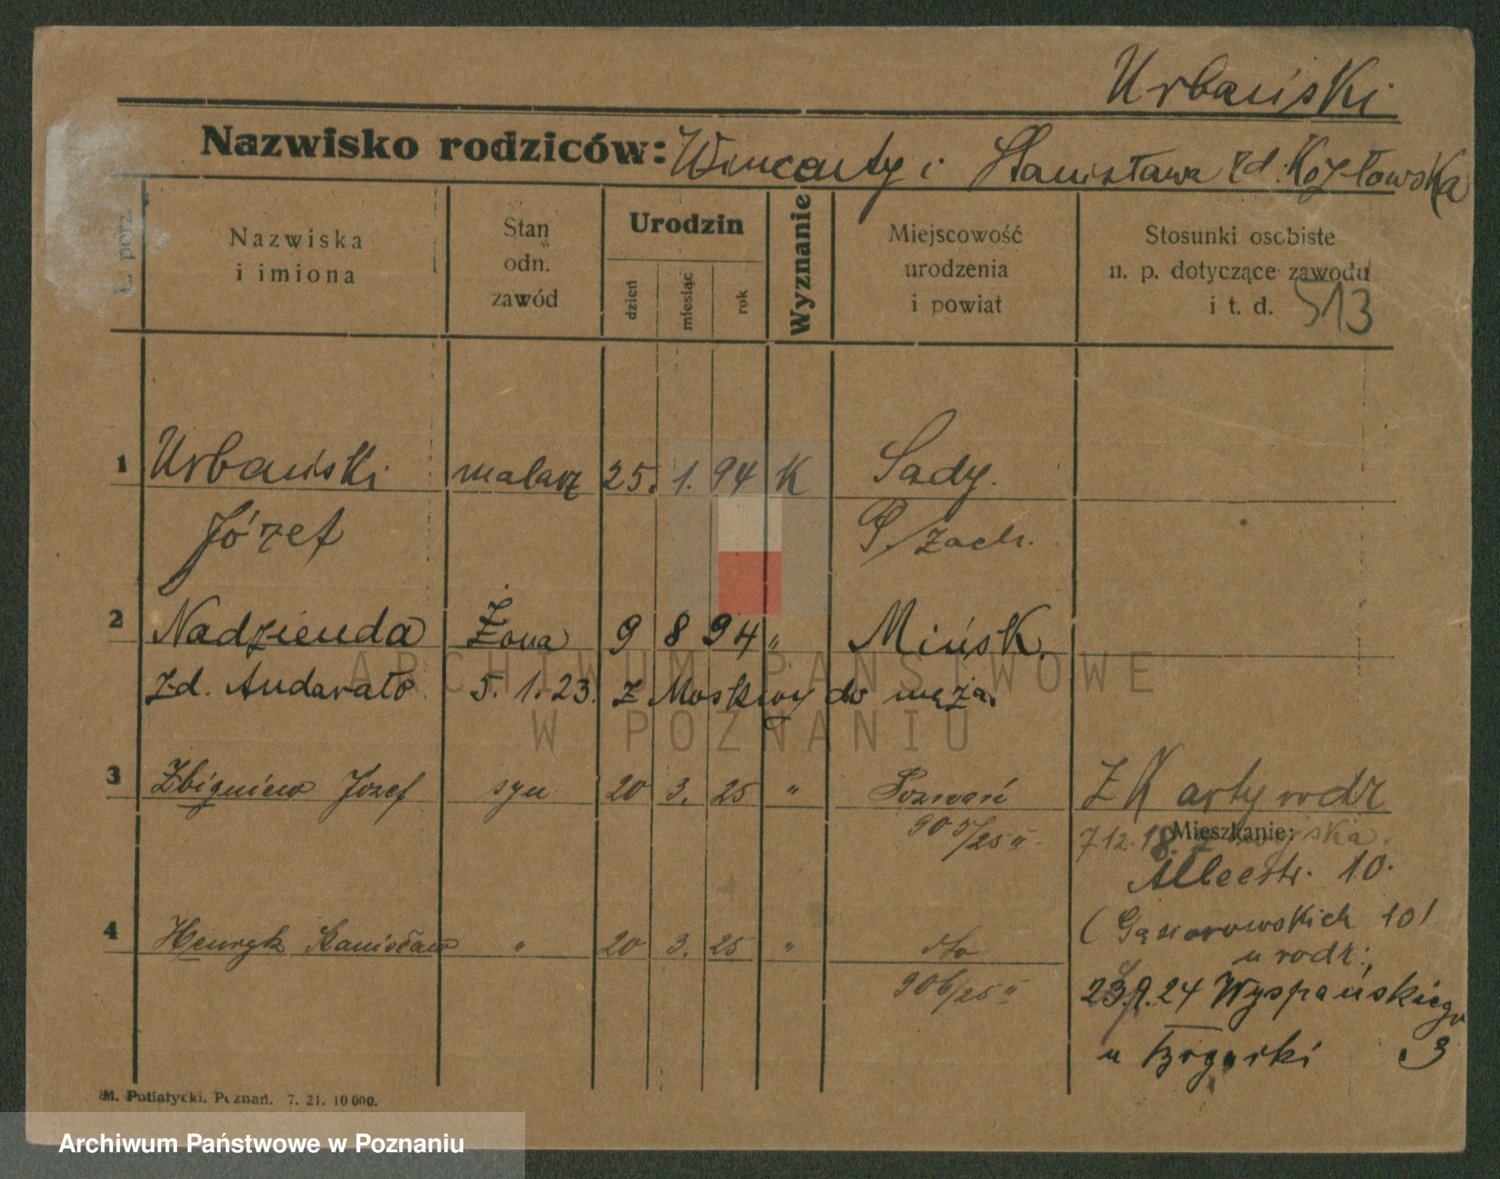 Urbański
Nazwisko rodziców: Wincenty i Stanisława zd. Kozłowska
L. porz.
Nazwiska
i imiona
Stan
odn.
zawód
Urodzin
dzień
miesiąc
rok
Wyznanie
Miejscowość
urodzenia
i powiat
Stosunki osobiste
n. p. dotyczące zawodu
i t. d.
513
1 Urbański malarz 25. 1. 94 K Sady.
Józef P/zach.
2 Nadzienda Żona 9 8 94 " Mińsk.
zd. Andarało 5. 1. 23. z Moskwy do męża.
3 Zbigniew Józef syn 20 3. 25 " Poznań Z Karty rodz
905/25 II
Mieszkanie:
7.12.18.
Alleestr. 10.
(Gąsiorowskich 10)
u rodz.
4 Henryk Stanisław " 20 3. 25 " dto
906/25 II
24 Wyspańskiego
u 3
M. Putiatycki. Poznań. 7. 21. 10 000.
ARCHIWUM PAŃSTWOWE
W POZNANIU
Archiwum Państwowe w Poznaniu